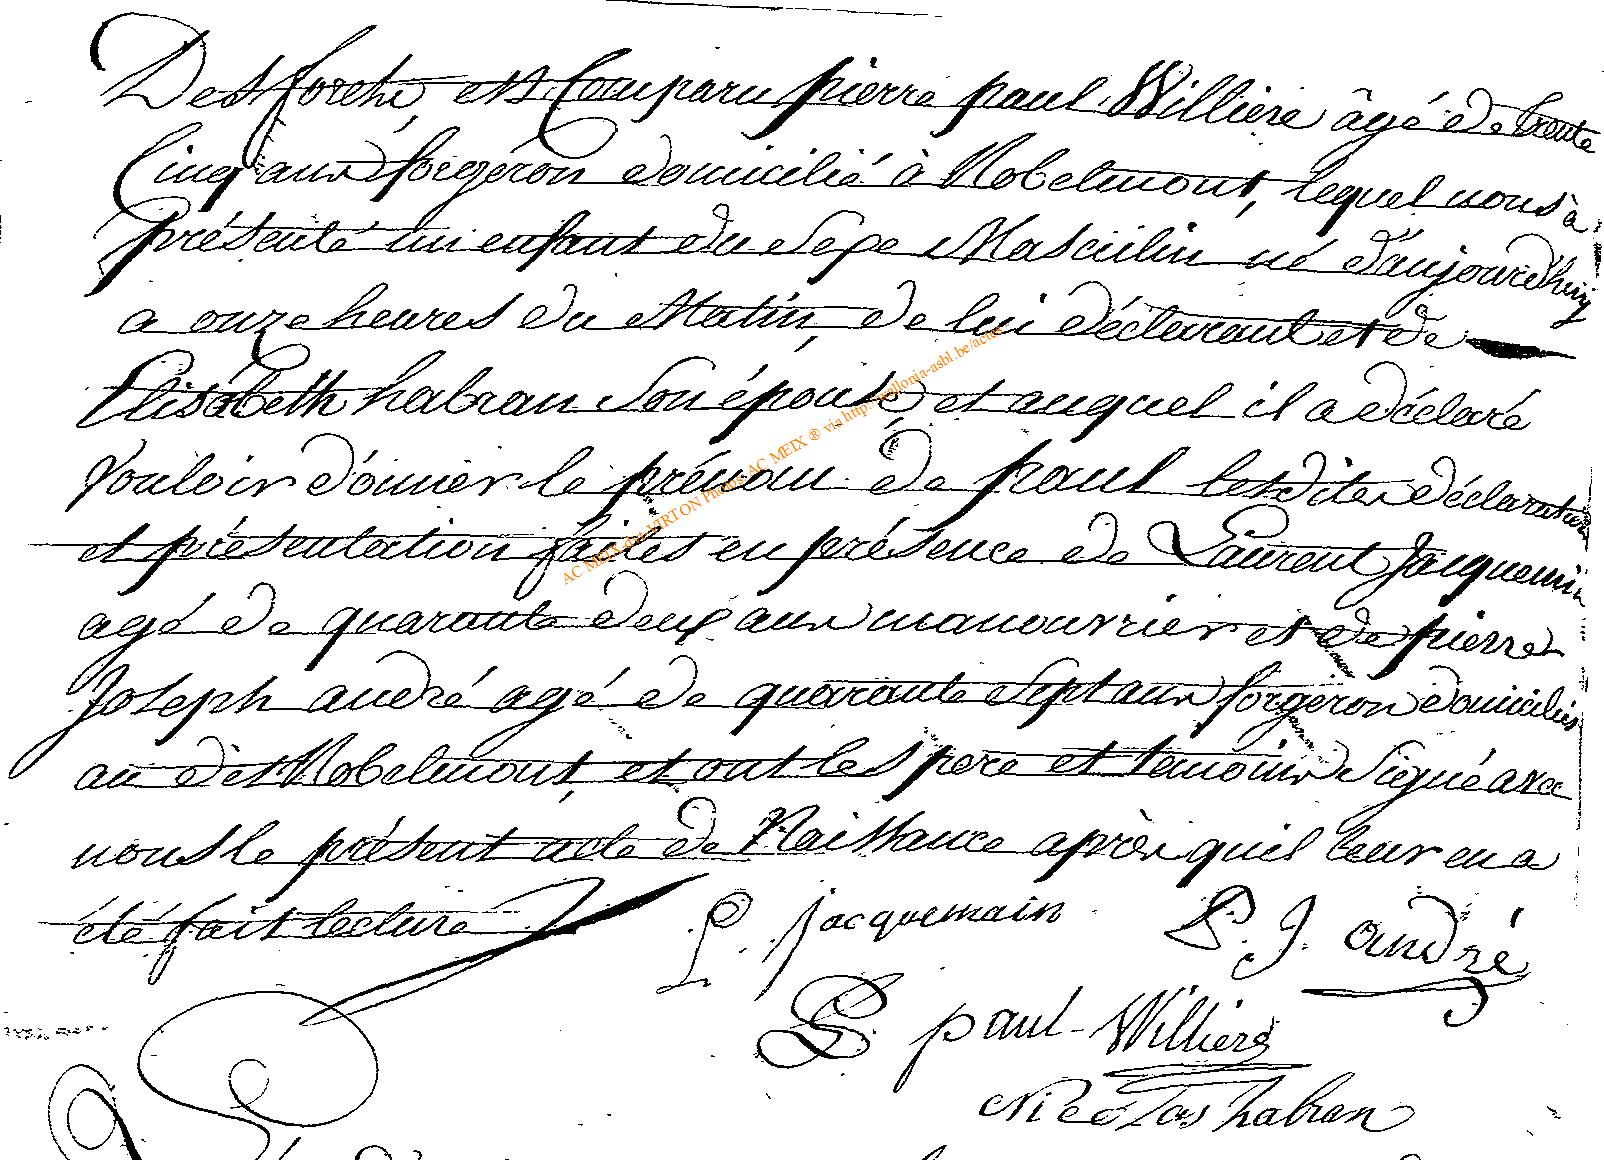 Destforche, est Comparu pierre paul Williere âgé de trente
Cinq ans forgéron domicilié à Robelmont, lequel nous à
présenté un enfant du Sexe Masculin né d'aujourd'huy
a onze heures du Matin, de lui déclarant et de
Elisabeth habran Son épouse, et auquel il a déclaré
vouloir donner le prénom de paul lesdites déclaration
et présentation faites en présence de Laurent Jacquemin
agé de quarante deux ans manouvrier et de pierre
Joseph andré agé de quarante Sept ans forgéron domiciliés
au dèt Robelmont, et ont les pere et temoins Signé avec
nous le présent acte de Naissance après quil leur en a
été fait lecture
L. jacquemain P. J. andré
P. paul Williere
Nicolas habran
AC MEIX dvt VIRTON Photos AC MEIX ® via http://wallonia-asbl.be/actes